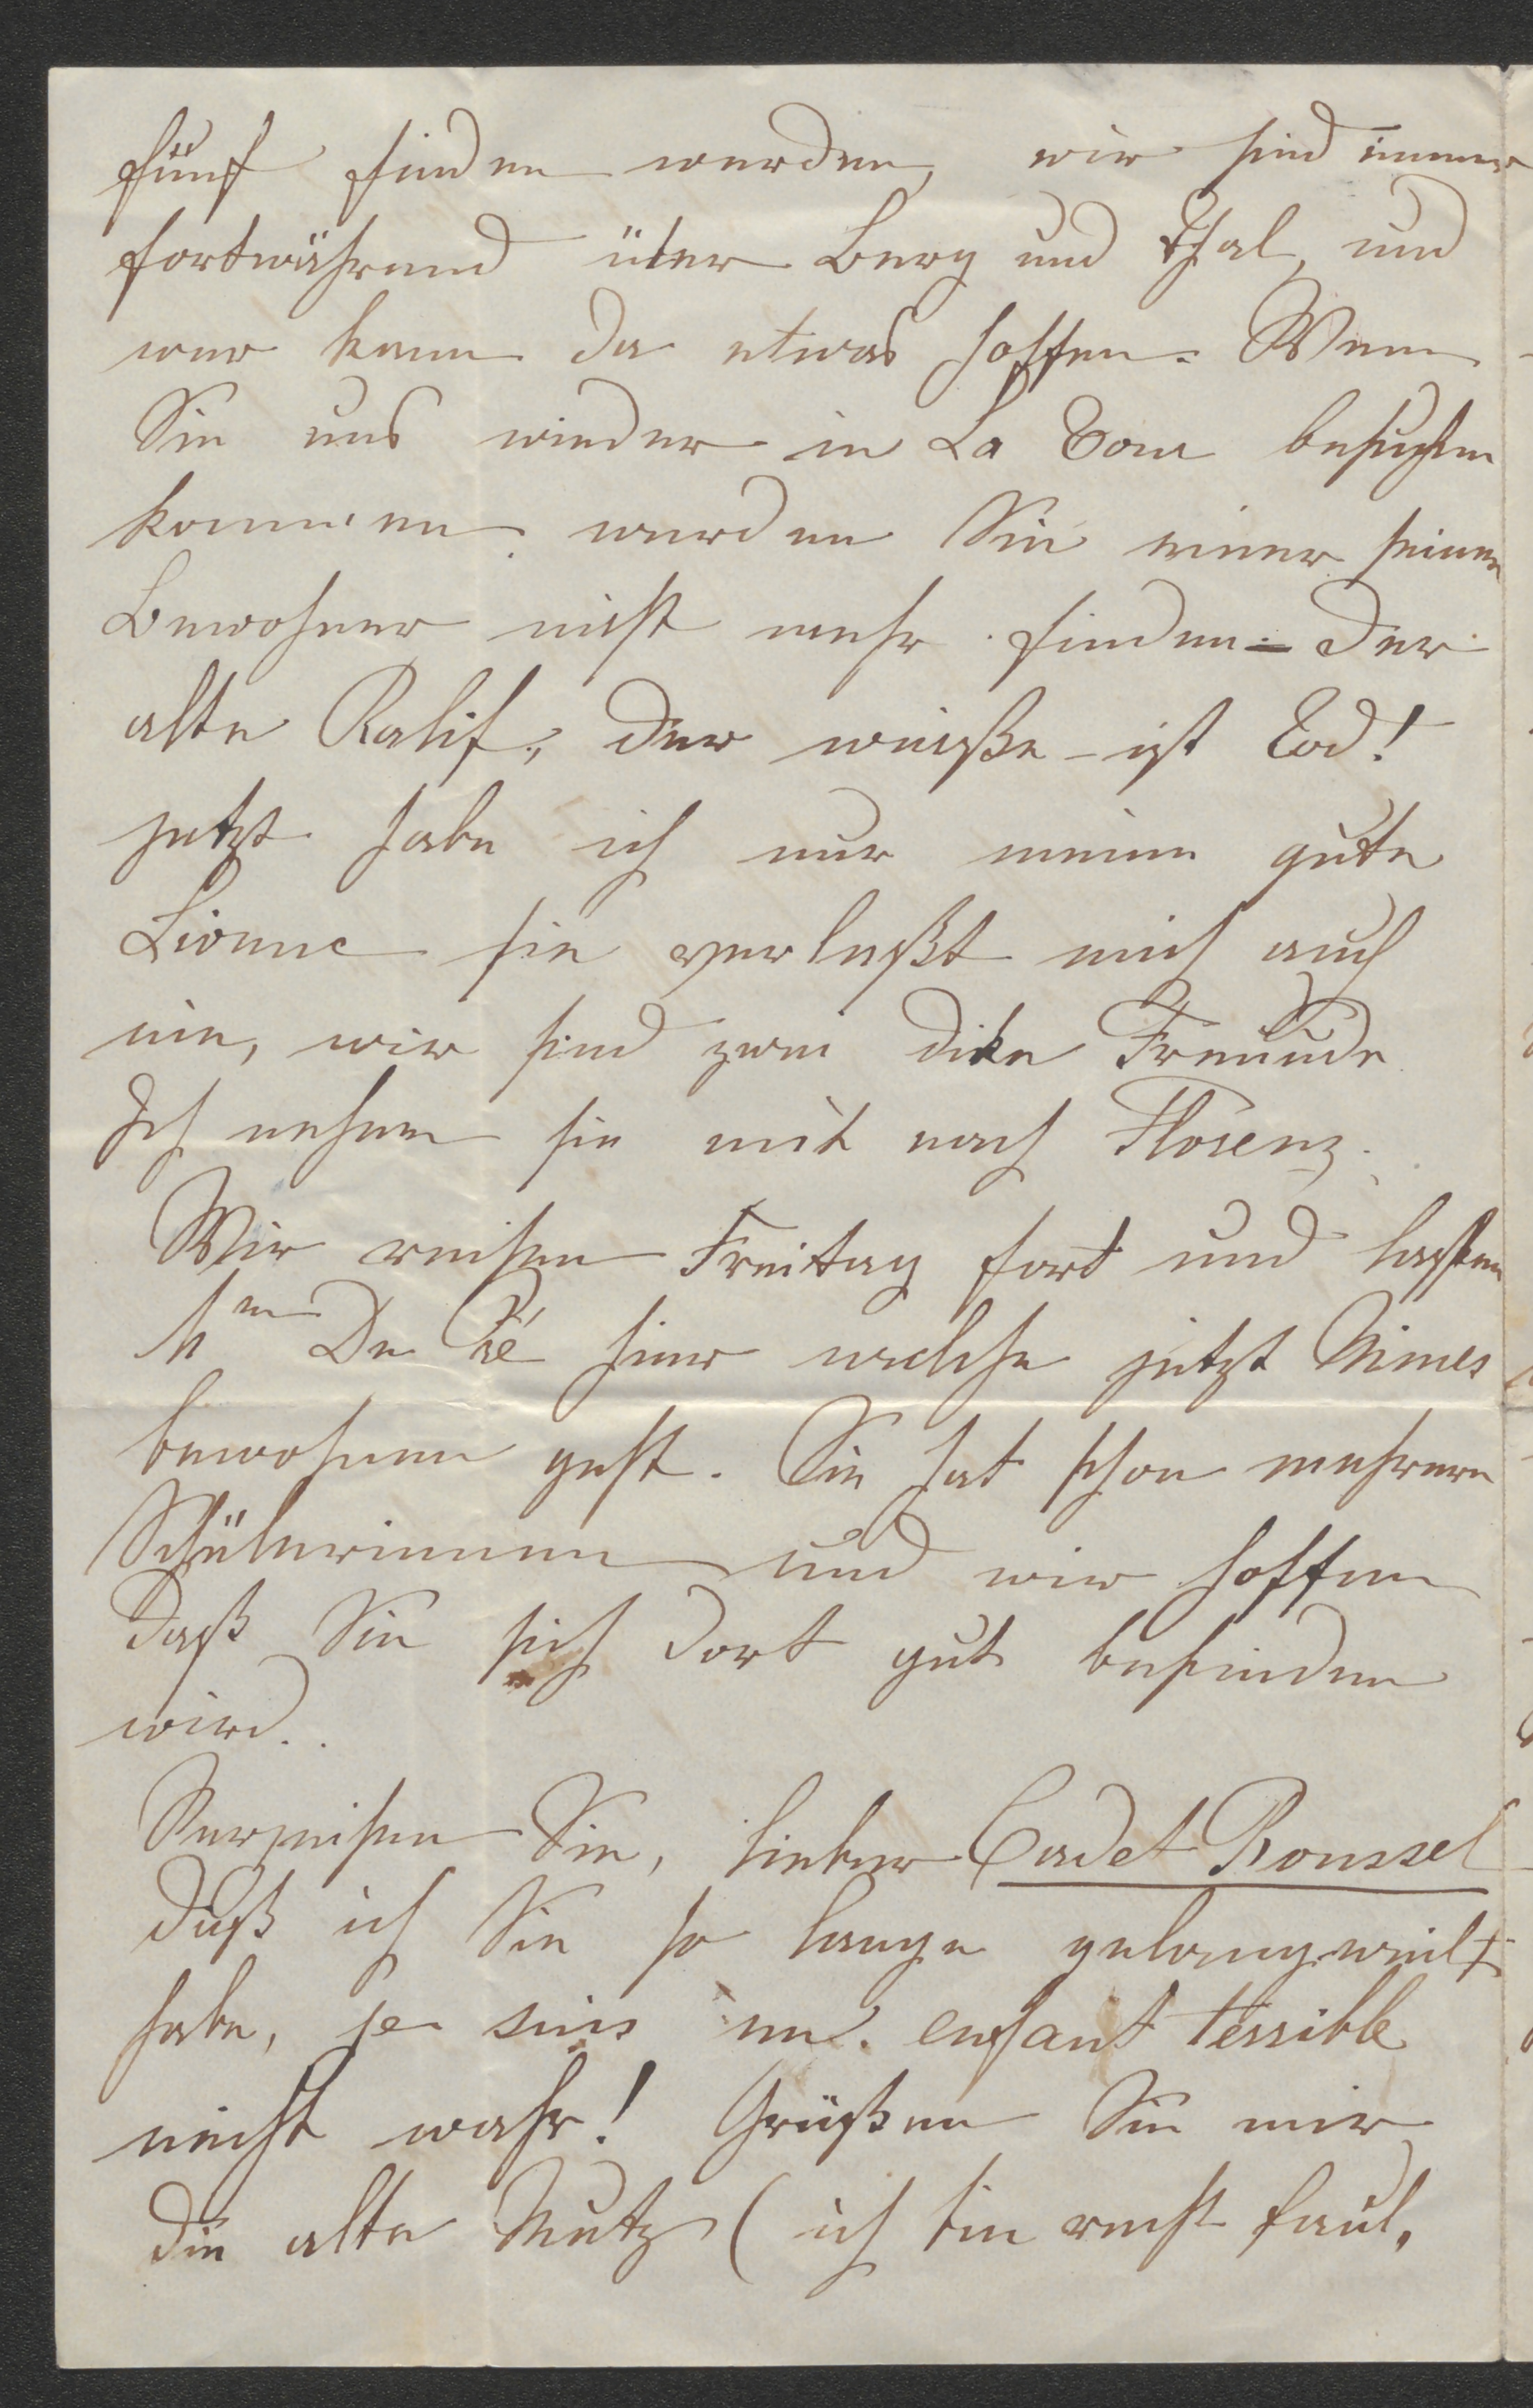 fünf finden werden, wir sind immer
fortwährend über Berg und Thal, und
wer kann da etwas hoffen. Wenn
Sie uns wieder in La Tour besuchen
kommen werden Sie einer seiner
Bewohner nicht mehr finden – der
alte Kalif, der weiße – ist Tod!
jetzt habe ich nur meine gute
Lionne sie verlaßt mich auch
nie, wir sind zwei dike Freunde
Ich nehme sie mit nach Florenz.
Wir reisen Freitag fort und lassen
Mm De hier welche jetzt Nimes
bewohnen geht. Sie hat schon mehrere
Schülerinnen und wir hoffen
daß Sie sich dort gut befinden
wird.
Verzeihen Sie, lieber Cadet Roussel
daß ich Sie so lange gelangweilt
habe, je suis un enfant terrible
nicht wahr! Grüßen Sie mir
die alte Mutz (ich bin recht faul,